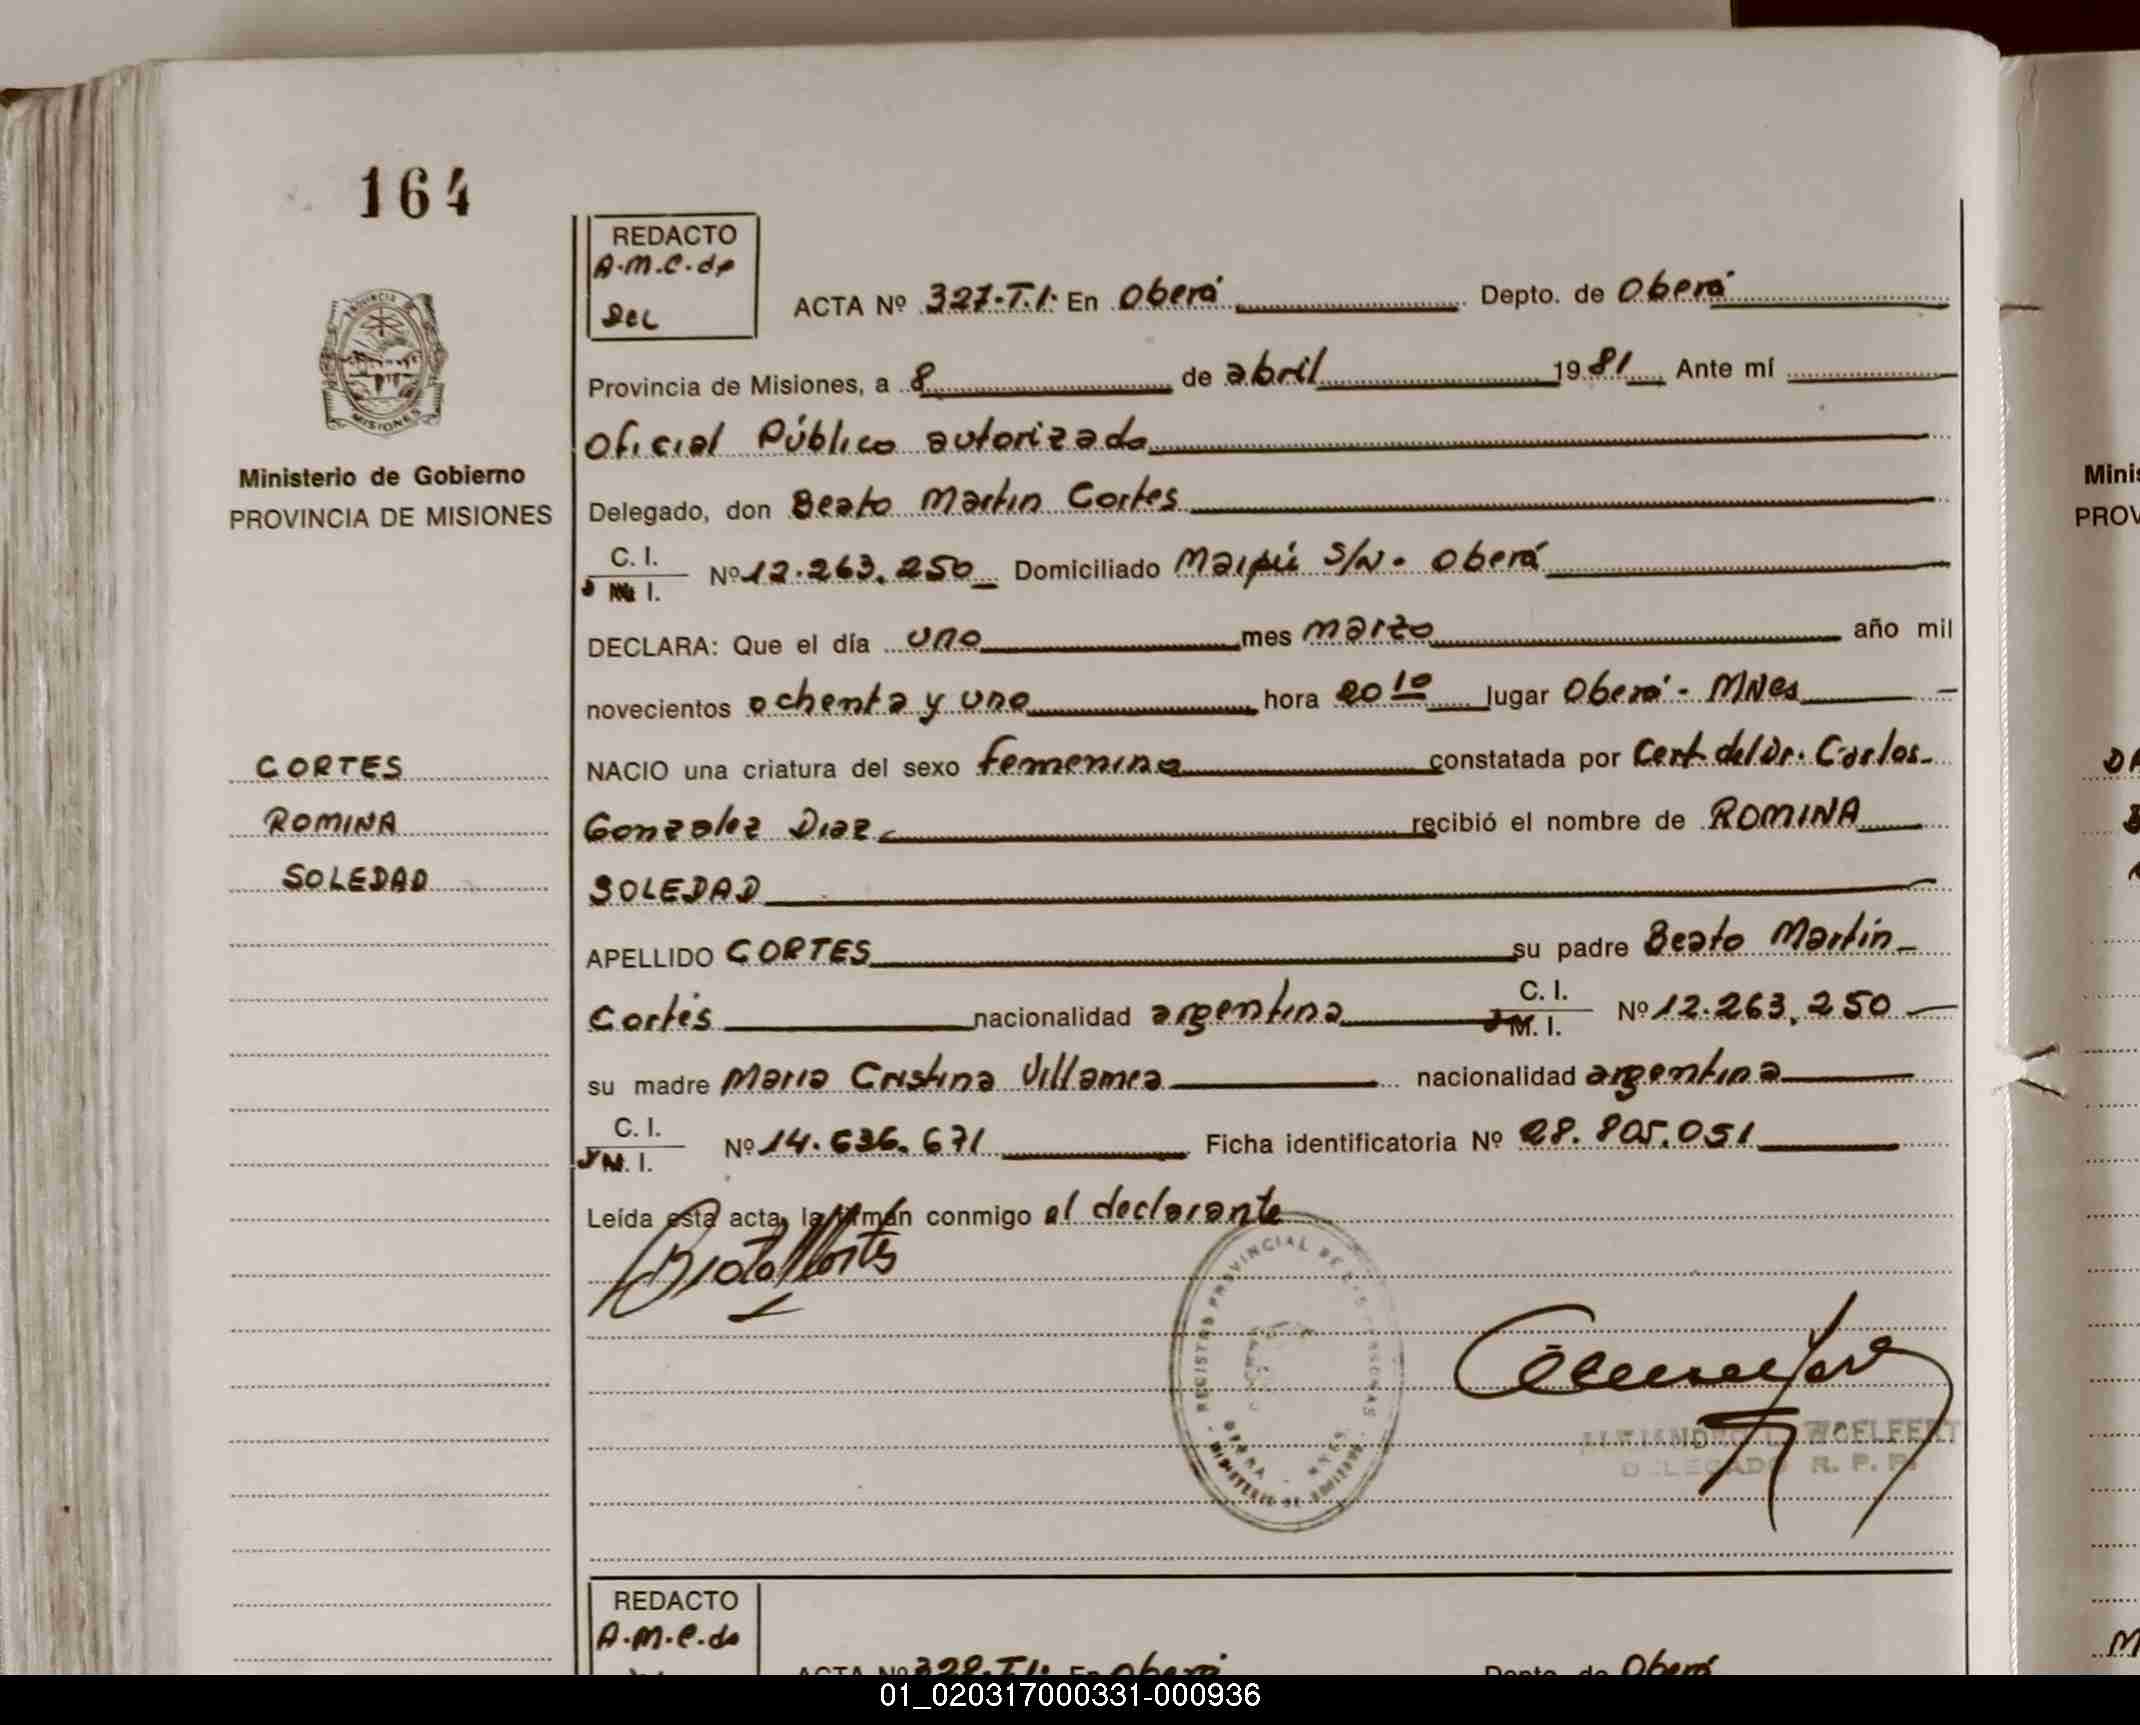 164
REDACTO
A.M.C. de
Sec
ACTA Nº 327.T.I. En Oberá Depto. de Oberá
Provincia de Misiones, a 8 de abril 1981 Ante mí
Oficial Público autorizado
Delegado, don Beato Martin Cortes
C. I.
I. Nº 12.263.250 Domiciliado Maipú S/N. Oberá
DECLARA: Que el día uno mes marzo año mil
novecientos ochenta y uno hora 20 10 lugar Oberá - Mnes
NACIO una criatura del sexo femenino constatada por Cert. del Dr. Carlos
Gonzalez Diaz recibió el nombre de ROMINA
SOLEDAD
APELLIDO CORTES su padre Beato Martin
Cortés nacionalidad argentina C. I. M. I. Nº 12.263.250
su madre Maria Cristina nacionalidad argentina
C. I.
M. I. Nº 14.636.671 Ficha identificatoria Nº 28.805.051
Leída esta acta, la firman conmigo el declarante
REGISTRO PROVINCIAL DE LAS PERSONAS
OBERA - MNES
MINISTERIO DE GOBIERNO
ALEJANDRO L. WOELFERT
DELEGADO R. P. P.
PROVINCIA DE
MISIONES
Ministerio de Gobierno
PROVINCIA DE MISIONES
CORTES
ROMINA
SOLEDAD
REDACTO
A.M.C. de
ACTA Nº 328.T.I. En Oberá Depto. de Oberá
Minis
PROV
01_020317000331-000936